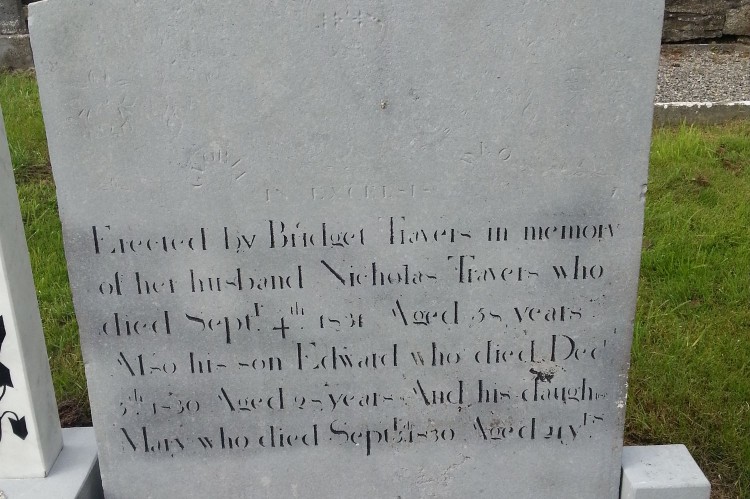 GLORIA DEO
IN EXCELSIS
Erected by Bridget Travers in memory
of her husband Nicholas Travers who
died Septr. 4th. 1831 Aged 58 years
Also his son Edward who died Decr
5th 1830 Aged years And his daughr
Mary who died Septr 1830 Aged 21 yrs